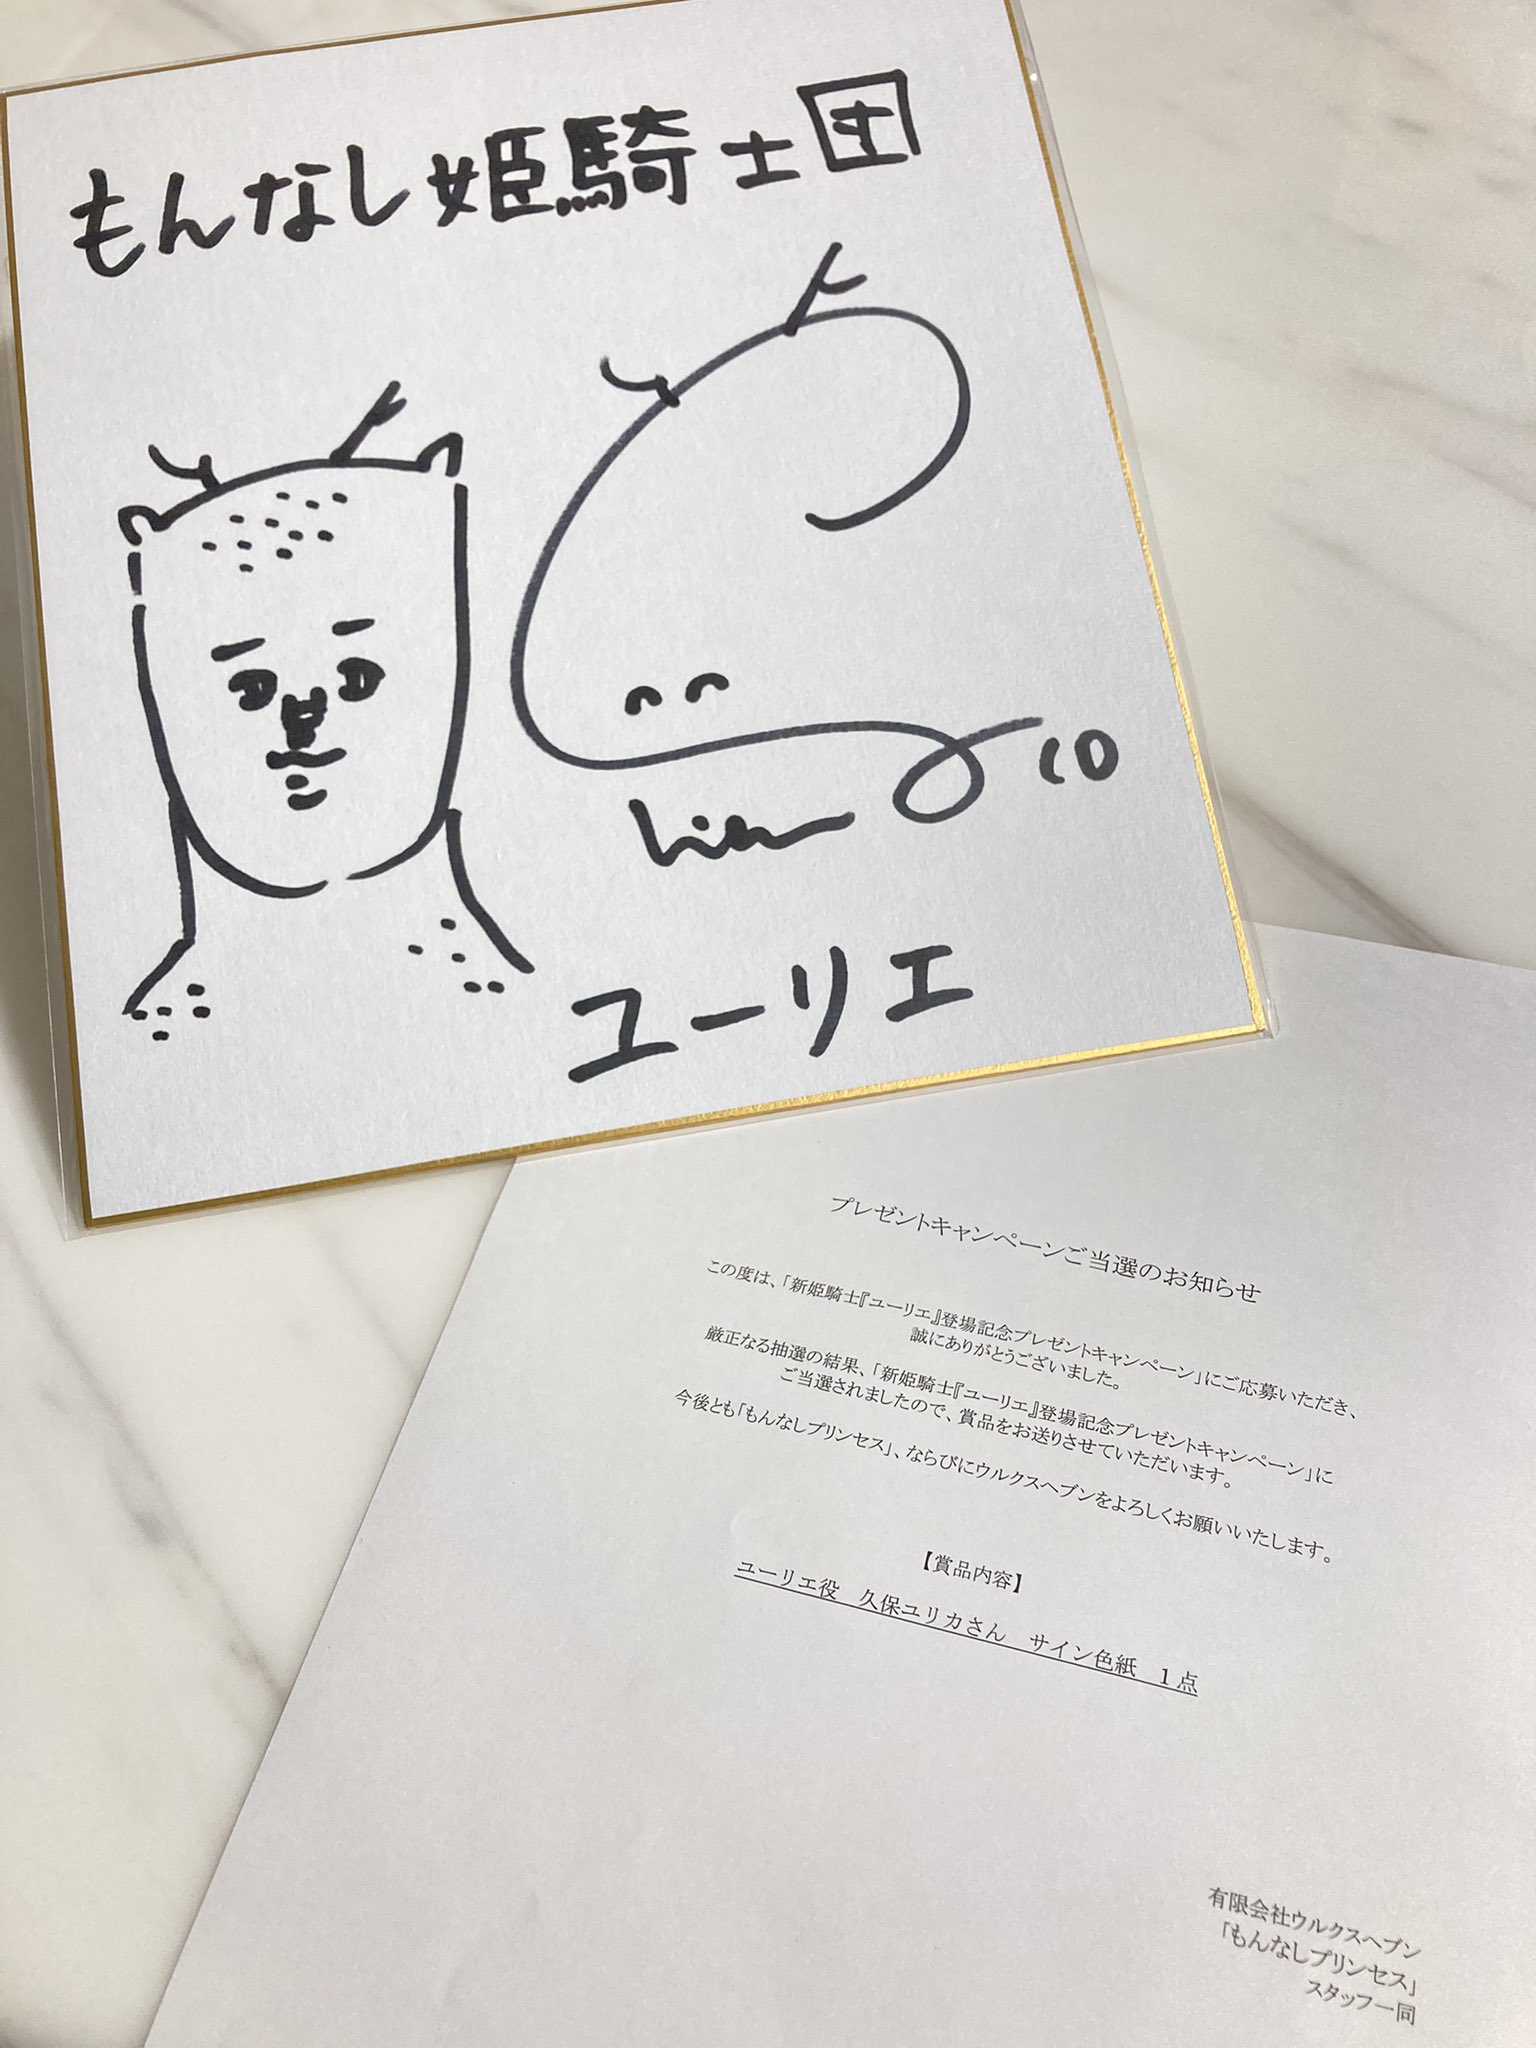 もんなし姫騎士団
ユーリエ
プレゼントキャンペーンご当選のお知らせ
この度は、「新姫騎士『ユーリエ』登場記念プレゼントキャンペーン」にご応募いただき、
誠にありがとうございました。
厳正なる抽選の結果、「新姫騎士『ユーリエ』登場記念プレゼントキャンペーン」に
ご当選されましたので、賞品をお送りさせていただいます。
今後とも「もんなしプリンセス」、ならびにウルクスへブンをよろしくお願いいたします。
【賞品内容】
ユーリエ役　久保ユリカさん　サイン色紙　1点
有限会社ウルクスへブン
「もんなしプリンセス」
スタッフ一同